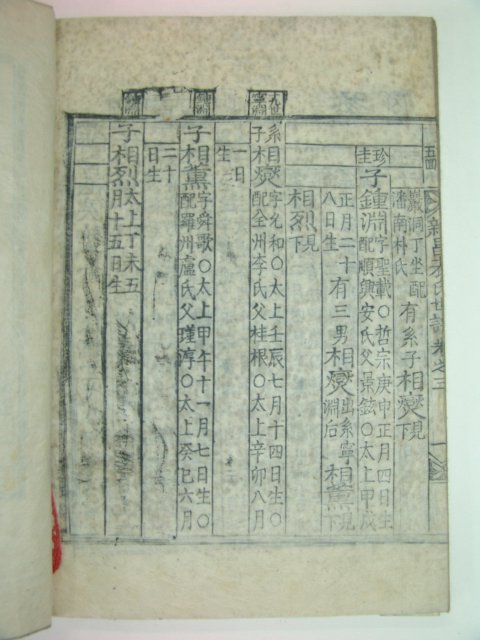 巖洞丁坐配
潘南朴氏
有系子相燮見下
珍圭
子鍾淵字聖載〇哲宗庚申正月四日生
配順興安氏父景鉉〇太上甲戌
正月二十
八日生
有三男相燮出系寧淵后相薰見下
相烈見下
系子相燮字允和〇太上壬辰七月十四日生〇
配全州李氏父桂根〇太上辛卯八月
一日
生
子相薰字舜歌〇太上甲午十一月七日生〇
配羅州盧氏父瑾淳〇太上癸巳六月
二十
日生
子相烈太上丁未五
月十五日生
氏世譜 卷之三